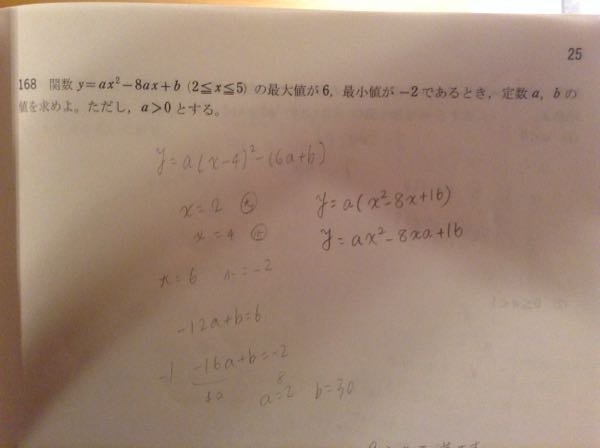 25
168 関数 y=ax²-8ax+b (2≦x≦5) の最大値が6, 最小値が-2であるとき, 定数 a, b の
値を求めよ。ただし, a>0 とする。
y=a(x-4)²-16a+b)
x=2 大
y=a(x²-8x+16)
x=4 小
y=ax²-8xa+16
x=6 x=-2
-12a+b=6
-1 -16a+b=-2
8
a=2 b=30